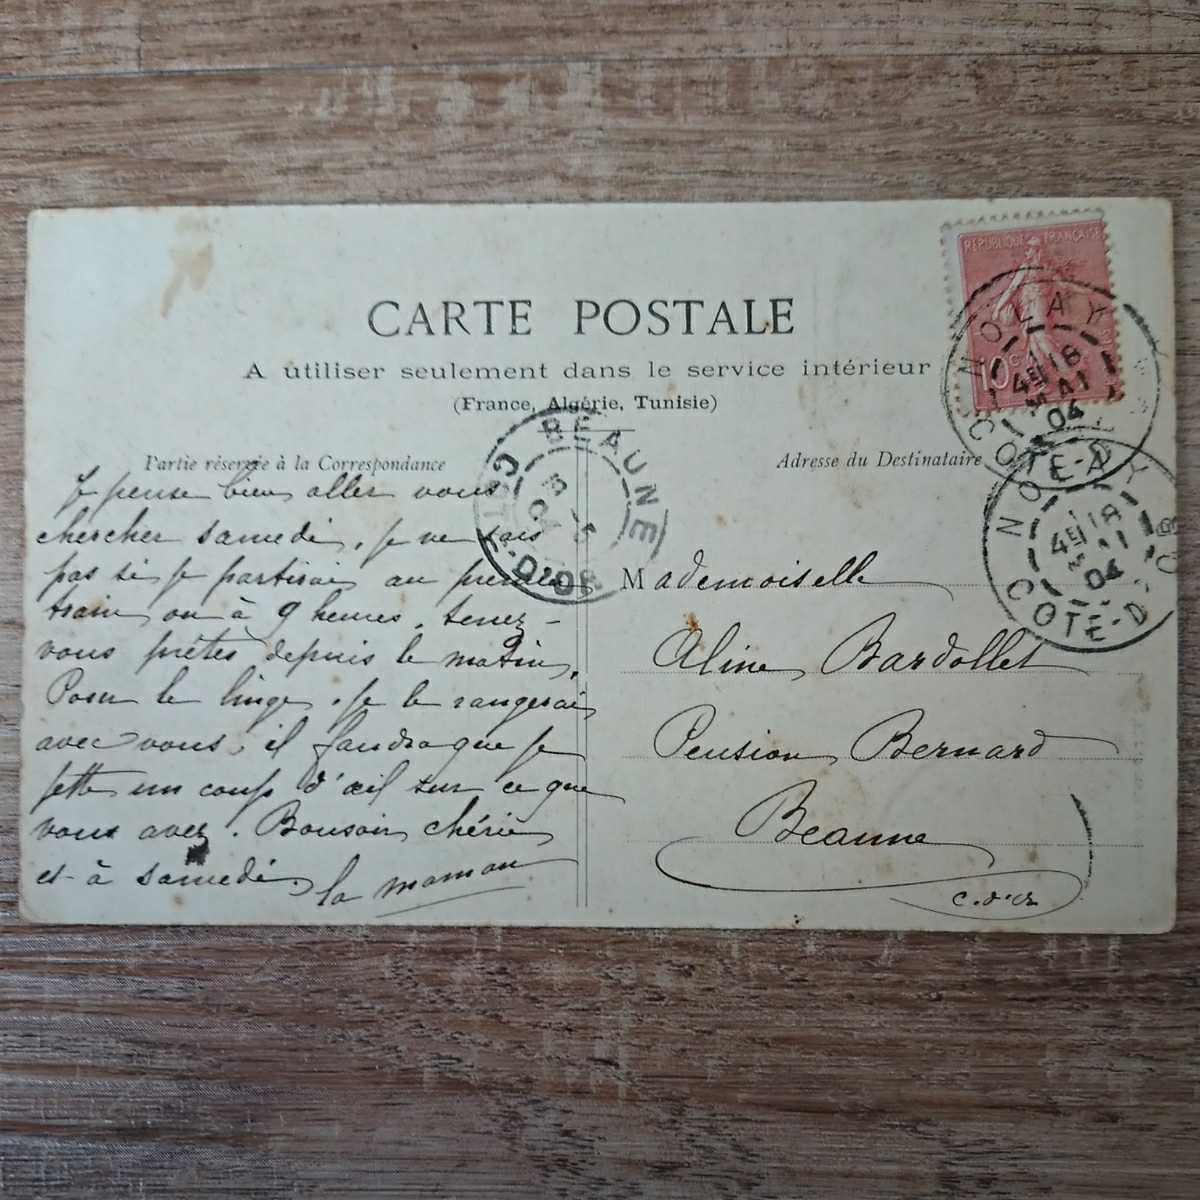 CARTE POSTALE
A utiliser seulement dans le service intérieur
(France, Algérie, Tunisie)
Partie réservée à la Correspondance
Adresse du Destinataire
Je pense bien aller vous
chercher samedi, je ne sais
pas si je partirai au premier
train ou à 9 heures, tenez-
vous prêtes depuis le matin.
Pour le linge, je le rangerai
avec vous, il faudra que je
jette un coup d'œil sur ce que
vous avez. Bonsoir chérie
et à samedi, la maman
Mademoiselle
Aline Bardollet
Pension Bernard
Beaune
C. d'Or
RÉPUBLIQUE FRANÇAISE
10 c
NOLAY
4E 18
MAI
04
COTE-D
NOLAY
4E 18
MAI
04
COTE-D
BEAUNE
04
COTE-D'OR